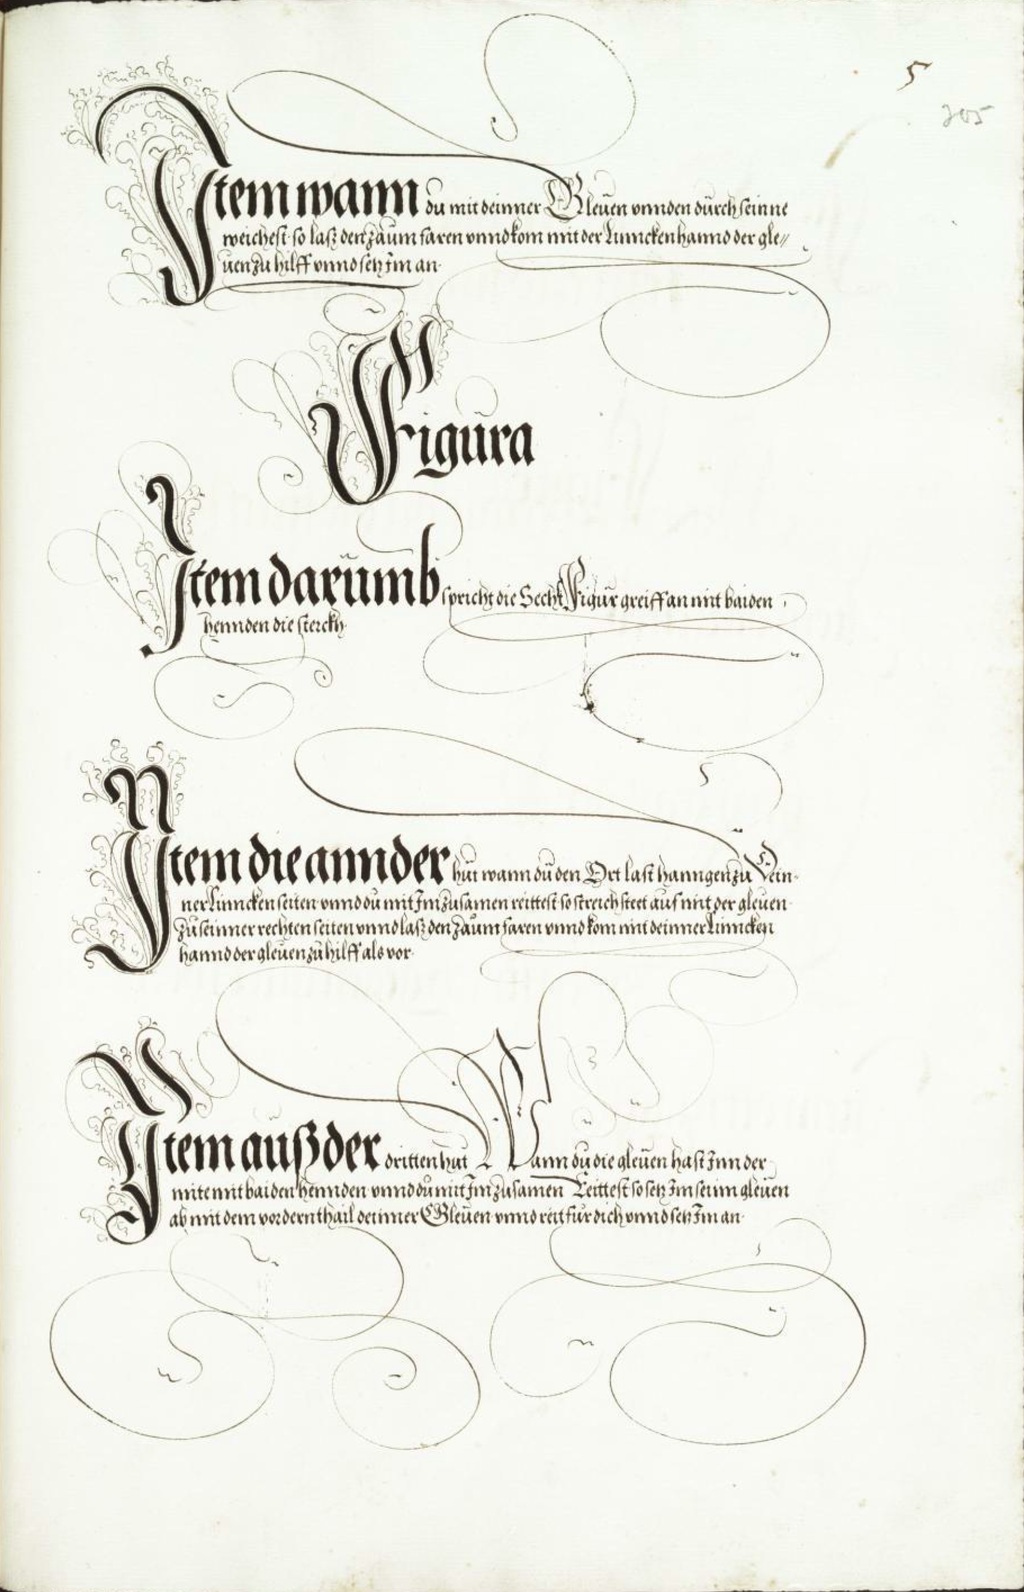 5
205
Item wann du mit deinner Gleuen vnnden durch seinne
weichest so laß den zaum faren vnnd kom mit der Linncken hannd der gle//
uen zu hilff vnnd setz Im an·
Figura
Item darumb spricht die Sechst Figur greiff an mit baiden
hennden die sterckh
Item die annder hut wann du den Ort last hanngen zu Dein-
ner Linncken seiten vnnd du mit Im zusamen reittest so streich steet auf mit der gleuen
zu seinner rechten seiten vnnd laß den zaum faren vnnd kom mit deinner Linncken
hannd der gleuen zu hilff als vor·
Item auß der dritten hut Wann du die gleuen hast Inn der
mite mit baiden hennden vnnd du mit Im zusamen Reittest so setz Im seinn gleuen
ab mit dem vordern thail deinner Gleuen vnnd reit für dich vnnd setz Im an·